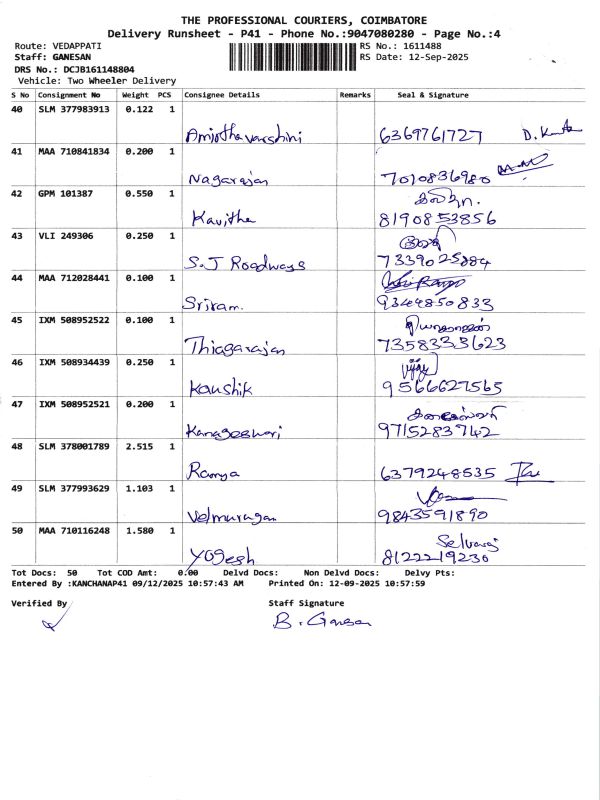 THE PROFESSIONAL COURIERS, COIMBATORE
Delivery Runsheet - P41 - Phone No.:9047080280 - Page No.:4
Route: VEDAPPATI
RS No.: 1611488
Staff: GANESAN
RS Date: 12-Sep-2025
DRS No.: DCJB161148804
Vehicle: Two Wheeler Delivery
S No Consignment No Weight PCS Consignee Details Remarks Seal & Signature
40 SLM 377983913 0.122 1
Amirthavarshini 6369761727
41 MAA 710841834 0.200 1
Nagarajan 7010836980
42 GPM 101387 0.550 1
Kavitha 8190853856
43 VLI 249306 0.250 1
S.J Roadways 7339025884
44 MAA 712028441 0.100 1
Sriram. 9344850833
45 IXM 508952522 0.100 1
Thiagarajan 7358333623
46 IXM 508934439 0.250 1
Kaushik 9566627565
47 IXM 508952521 0.200 1
Kanageswari 9715283742
48 SLM 378001789 2.515 1
Ramya 6379248535
49 SLM 377993629 1.103 1
Velmurugan 9843591890
50 MAA 710116248 1.580 1
Selvaraj
Yogesh 8122219230
Tot Docs: 50 Tot COD Amt: 0.00 Delvd Docs: Non Delvd Docs: Delvy Pts:
Entered By :KANCHANAP41 09/12/2025 10:57:43 AM Printed On: 12-09-2025 10:57:59
Verified By Staff Signature
B. Ganesan